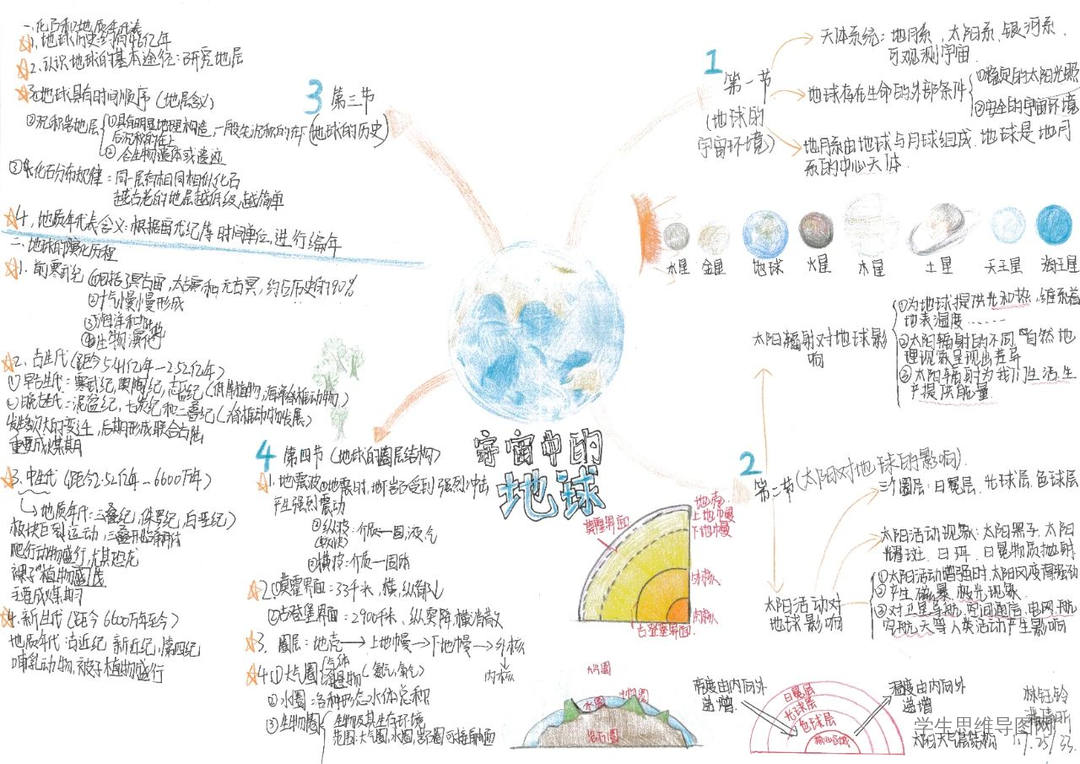 宇宙中的
地球
1
第一节
(地球的
宇宙环境)
天体系统：地月系，太阳系，银河系，
可观测宇宙．
地球存在生命的外部条件
①稳定的太阳光照
②安全的宇宙环境
地月系由地球与月球组成．地球是地月
系的中心天体．
水星 金星 地球 火星 木星 土星 天王星 海王星
2
第二节(太阳对地球的影响)
太阳辐射对地球影
响
①为地球提供光和热，维系着
地表温度……
②太阳辐射的不同"自然地
理现象呈现出差异
③太阳辐射为我们生活生
产提供能量．
三个圈层：日冕层，光球层，色球层
太阳活动对
地球影响
太阳活动现象：太阳黑子，太阳
耀斑，日珥，日冕物质抛射
①太阳活动增强时，太阳风
②产生磁暴，极光现象．
③对卫星导航，空间通信，电网，航
空航天等人类活动产生影响
亮度由内向外
递增
温度由内向外
递增
日冕层
光球层
色球层
太阳大气层结构
学生思维导图网
3
第三节
(地球的历史)
一、化石和地质年代表
1．地球历史约有46亿年
2．认识地球的基本途径：研究地层
地球具有时间顺序（地层含义）
②沉积岩地层
①具有明显地理构造，一般先沉积的在下
后沉积的在上
②含生物遗体或遗迹
③化石分布规律：同一层有相同相似化石
越古老的地层越低级，越简单
4．地质年代表含义：根据宙代纪等时间单位，进行编年
二、地球的演化历程
1．前寒武纪 ①包括冥古宙，太古宙和元古宙，约占历史的90%
②大气慢慢形成
③海洋和陆地
④生物演化
2．古生代（距今5.41亿年—2.52亿年）
①早古生代：寒武纪，奥陶纪，志留纪
②晚古生代：泥盆纪，石炭纪和二叠纪（脊椎动物发展）
发生幼大的变迁，后期形成联合古陆
重要成煤期
3．中生代（距今2.52亿年—6600万年）
地质年代：三叠纪，侏罗纪，白垩纪
板块巨烈运动，三叠开始解体
爬行动物盛行，尤其恐龙
裸子"植物盛茂
主要成煤期
4．新生代（距今6600万年至今）
地质年代：古近纪 新近纪，第四纪
哺乳动物，被子植物盛行
4
第四节（地球的圈层结构）
1．地震波 ①地震时，地下岩石受到强烈冲击
产生强烈震动
②纵波：介质—固，液，气
③横波：介质—固体
2．①莫霍界面：33千米，横，纵
②古登堡界面：2900千米，纵突降，横波消失
3．圈层：地壳→上地幔→下地幔→外核
内核
4．①大气圈
②水圈：各种形态水体总和
③生物圈
生物及其生存环境
范围：大气圈，水圈，岩石圈可接触面
莫霍界面
地壳
上地幔
下地幔
外核
内核
古登堡界面
大气圈
水圈
生物圈
岩石圈